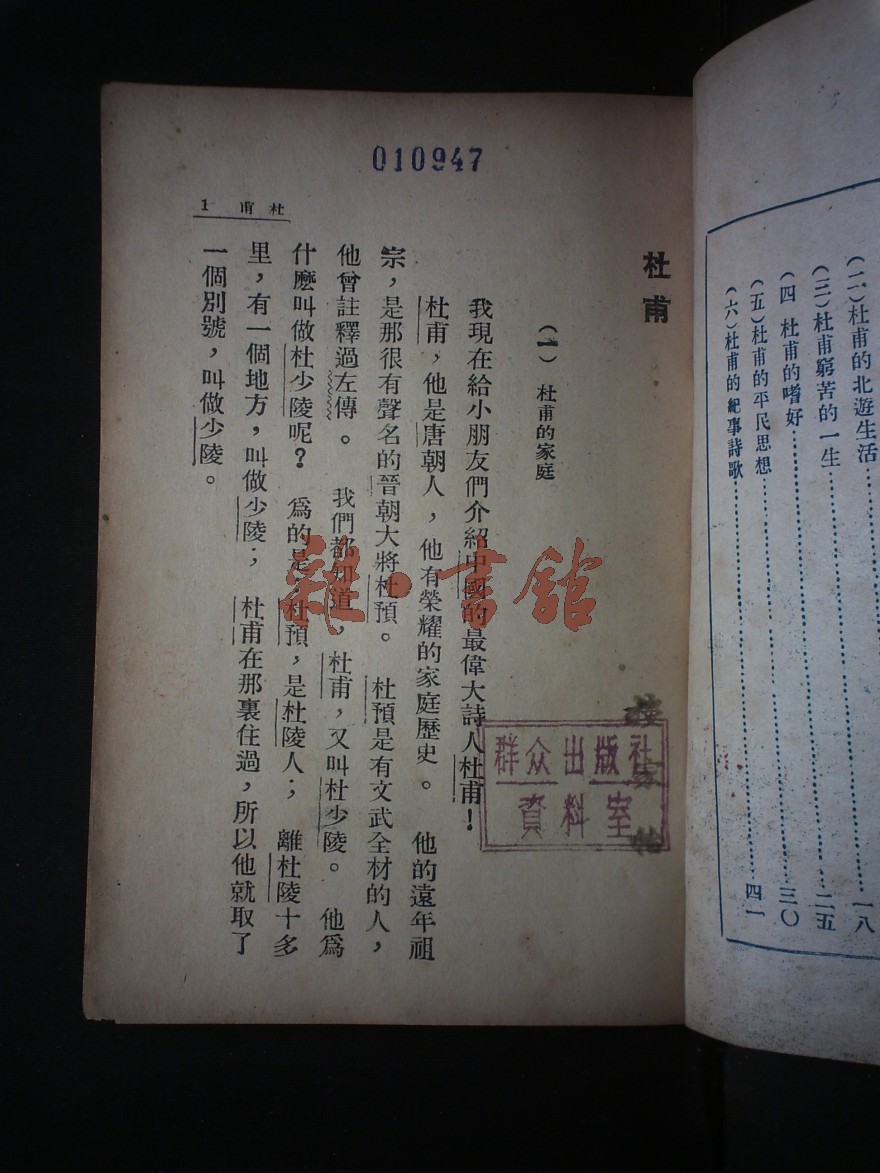 (二)杜甫的北遊生活…………一八
(三)杜甫窮苦的一生…………二五
(四 杜甫的嗜好…………三〇
(五)杜甫的平民思想…………
(六)杜甫的紀事詩歌…………四一
010947
杜甫 1
杜甫
(一) 杜甫的家庭
我現在給小朋友們介紹中國的最偉大詩人杜甫!
杜甫,他是唐朝人,他有榮耀的家庭歷史。 他的遠年祖
宗,是那很有聲名的晉朝大將杜預。 杜預是有文武全材的人,
他曾註釋過左傳。 我們都知道,杜甫,又叫杜少陵。 他爲
什麽叫做杜少陵呢? 爲的是,杜預,是杜陵人; 離杜陵十多
里,有一個地方,叫做少陵; 杜甫在那裏住過,所以他就取了
一個別號,叫做少陵。
群众出版社
資料室
雜·書館